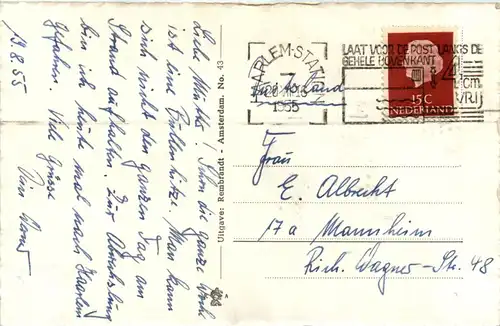 19.8.55
Liebe Mutter! Schon die ganze Woche
ist eine Bullenhitze. Man kann
sich nicht den ganzen Tag am
Strand aufhalten. Zur Abwechslung
bin ich heute mal nach Haarlem
gefahren. Viele Grüsse
Dein
Uitgave: Rembrandt - Amsterdam. No. 43
HAARLEM-STATION
7
1955
LAAT VOOR DE POST LANGS DE
GEHELE BOVENKANT
4
cm
VRIJ
15C
NEDERLAND
Frau
E. Albrecht
17a Mannheim
Rich. Wagner-Str. 48